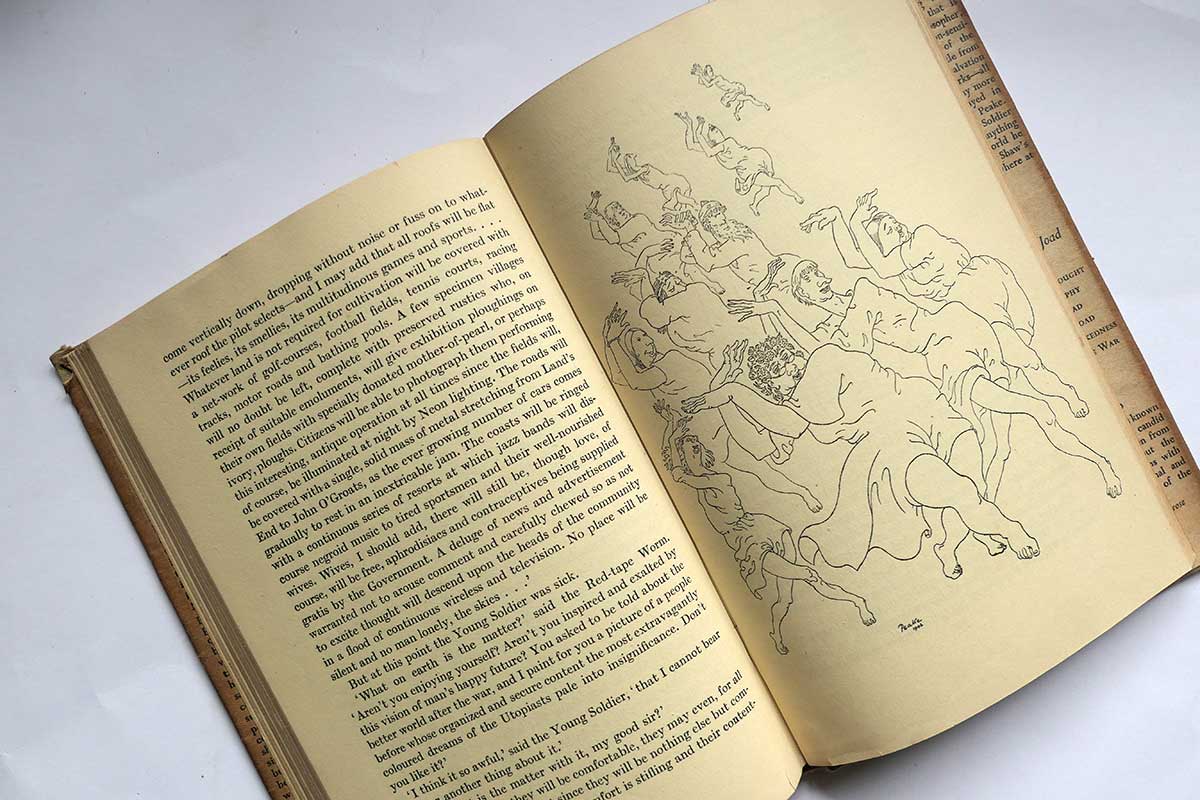 come vertically down, dropping without noise or fuss on to what-
ever roof the pilot selects—and I may add that all roofs will be flat
—its feelies, its smellies, its multitudinous games and sports. . . .
Whatever land is not required for cultivation will be covered with
a net-work of golf-courses, football fields, tennis courts, racing
tracks, motor roads and bathing pools. A few specimen villages
will no doubt be left, complete with preserved rustics who, on
receipt of suitable emoluments, will give exhibition ploughings on
their own fields with specially donated mother-of-pearl, or perhaps
ivory, ploughs. Citizens will be able to photograph them performing
this interesting, antique operation at all times since the fields will,
of course, be illuminated at night by Neon lighting. The roads will
be covered with a single, solid mass of metal stretching from Land's
End to John O'Groats, as the ever growing number of cars comes
gradually to rest in an inextricable jam. The coasts will be ringed
with a continuous series of resorts at which jazz bands will dis-
course negroid music to tired sportsmen and their well-nourished
wives. Wives, I should add, there will still be, though love, of
course, will be free, aphrodisiacs and contraceptives being supplied
gratis by the Government. A deluge of news and advertisement
warranted not to arouse comment and carefully chewed so as not
to excite thought will descend upon the heads of the community
in a flood of continuous wireless and television. No place will be
silent and no man lonely, the skies . . .'
But at this point the Young Soldier was sick.
'What on earth is the matter?' said the Red-tape Worm.
'Aren't you enjoying yourself? Aren't you inspired and exalted by
this vision of man's happy future? You asked to be told about the
better world after the war, and I paint for you a picture of a people
before whose organized and secure content the most extravagantly
coloured dreams of the Utopiasts pale into insignificance. Don't
you like it?'
'I think it so awful,' said the Young Soldier, 'that I cannot bear
another thing about it.'
is the matter with it, my good sir?'
they will be comfortable, they may even, for all
since they will be nothing else but com-
is stifling and their content-
Peake
that
of the
le from
ks—all
y more
yed in
Peake.
Soldier
nything
orld he
Shaw's
here at
Joad
OUGHT
PHY
AD
DAD
WAR
known
candid
from
the
with
and
of the